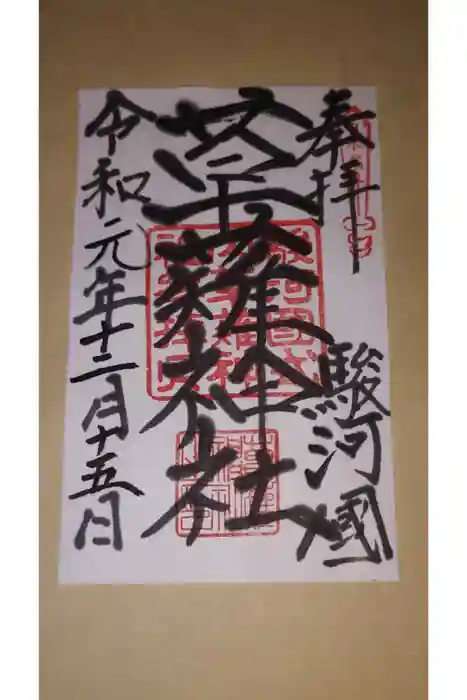 奉拝
駿河國
草薙神社
令和元年十二月十五日